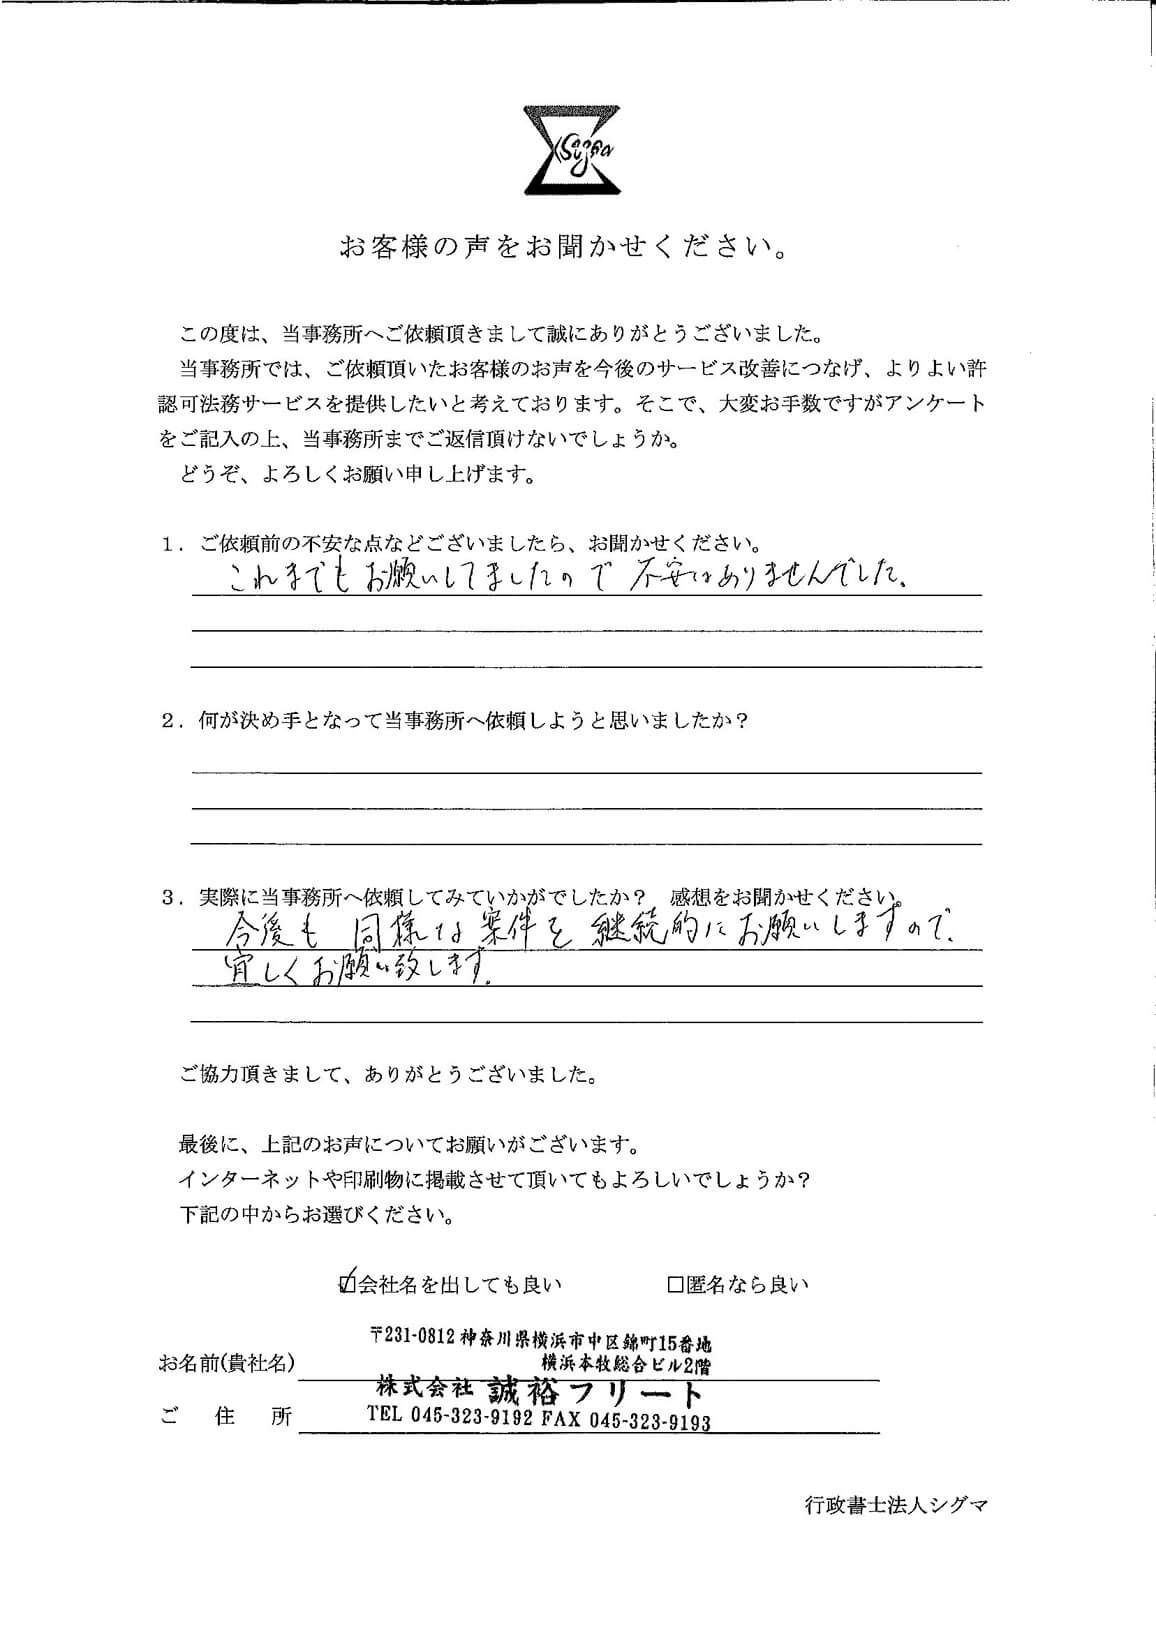 Sigma
お客様の声をお聞かせください。
この度は、当事務所へご依頼頂きまして誠にありがとうございました。
当事務所では、ご依頼頂いたお客様のお声を今後のサービス改善につなげ、よりよい許
認可法務サービスを提供したいと考えております。そこで、大変お手数ですがアンケート
をご記入の上、当事務所までご返信頂けないでしょうか。
どうぞ、よろしくお願い申し上げます。
1．ご依頼前の不安な点などございましたら、お聞かせください。
これまでもお願いしてましたので不安はありませんでした。
2．何が決め手となって当事務所へ依頼しようと思いましたか？
3．実際に当事務所へ依頼してみていかがでしたか？　感想をお聞かせください。
今後も同様な案件を継続的にお願いしますので、
宜しくお願い致します。
ご協力頂きまして、ありがとうございました。
最後に、上記のお声についてお願いがございます。
インターネットや印刷物に掲載させて頂いてもよろしいでしょうか？
下記の中からお選びください。
☑会社名を出しても良い　□匿名なら良い
〒231-0812 神奈川県横浜市中区錦町15番地
横浜本牧総合ビル2階
お名前(貴社名)
株式会社 誠裕フリート
ご住所
TEL 045-323-9192 FAX 045-323-9193
行政書士法人シグマ